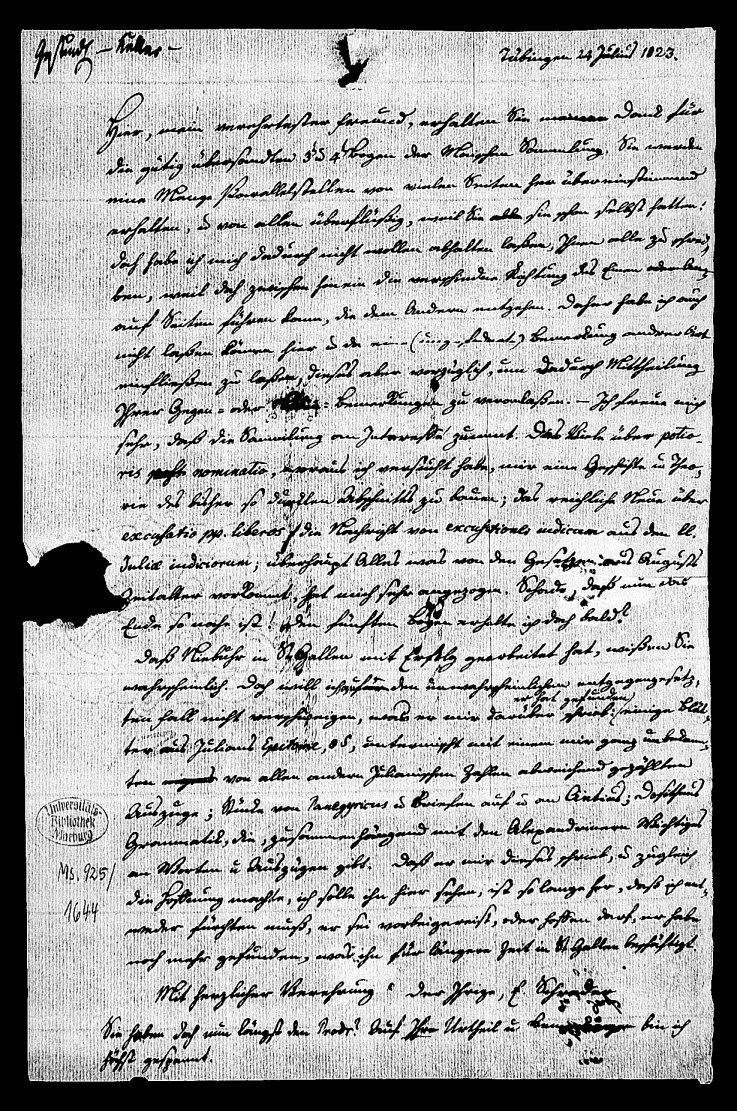 Tübingen 24 Julius 1823.
Hier, mein verehrtester Freund, erhalten Sie meinen Dank für
die gütig übersandten Bogen der Sammlung. Sie werden
eine Menge Parallelstellen von vielen Seiten her übereinstimmend
erhalten, u von allen überflüßig, weil Sie alle sie schon selbst hatten:
doch habe ich mich dadurch nicht wollen abhalten laßen, Ihnen alle zu schrei-
ben, weil doch zwischen hinein die verschiedne Richtung des Einen oder
auf Seiten führen kann, die dem Andern entgehen. Daher habe ich auch
nicht laßen können hier u da eine Bemerkung andrer Art
einfließen zu laßen, dieses aber vorzüglich, um dadurch Mittheilung
Ihrer Gegen- oder Bemerkungen zu veranlaßen. – Ich freue mich
sehr, daß die Sammlung an Interesse zunimmt. Das Viele über potio-
ris nominatio, woraus ich versucht habe, mir eine Geschichte u Theo-
rie des bisher so dunklen Abschnitts zu bauen; das reichliche Neue über
excusatio pp. liberos, die Nachricht von aus den ll.
Juliæ iudiciorum; überhaupt Alles was von den Gesetzen aus Augusts
Zeitalter vorkommt, hat mich sehr angezogen. Schade, daß nun das
Ende so nahe ist! den fünften Bogen erhalte ich doch bald?
Daß Niebuhr in St Gallen mit Erfolg gearbeitet hat, wißen Sie
wahrscheinlich. Doch will ich den unwahrscheinlichen entgegengesetz-
ten Fall nicht verschweigen, was er mir darüber schrieb: er hat gefunden einige Blät-
ter aus Julians Epitome, untermischt mit einem mir ganz unbekann-
ten von allen andern Julianischen Zahlen abweichend gezählten
Auszuge; Stücke von Panegyricus u Briefen auf u an Aetius; Dositheus
Grammatik, die, zusammenhängend mit den Alexandrinern Wichtiges
an Worten u Auszügen gibt. Daß er mir dieses schrieb, u zugleich
die Hoffnung machte, ich solle ihn hier sehen, ist so lange her, daß ich ent-
weder fürchten muß, er sei vorbeigereist, oder hoffen darf, er habe
noch mehr gefunden, was ihn für längere Zeit in St Gallen beschäftigt.
Mit herzlicher Verehrung der Ihrige, E. Schrader
Sie haben doch nun längst den Auf Ihr Urtheil u. bin ich
höchst gespannt.
Universitäts-
Bibliothek
Marburg
Ms. 925/
1644